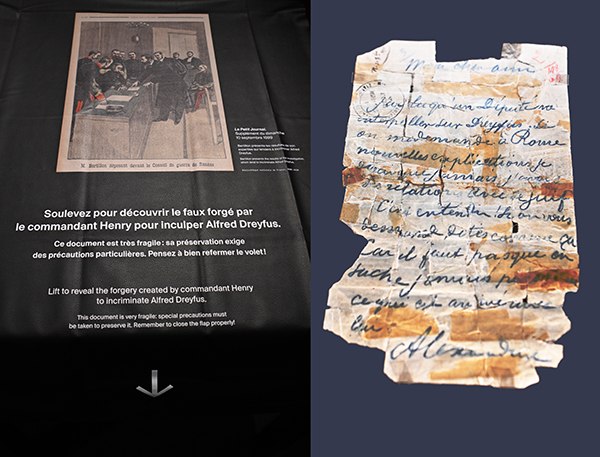 Le Petit Journal.
Supplément du dimanche
10 septembre 1899
Bertillon présente les résultats de son
expertise qui tendent à incriminer Alfred
Dreyfus.
M. Bertillon déposant devant le Conseil de guerre de Rennes
Soulevez pour découvrir le faux forgé par
le commandant Henry pour inculper Alfred Dreyfus.
Ce document est très fragile : sa préservation exige
des précautions particulières. Pensez à bien refermer le volet !
Lift to reveal the forgery created by commandant Henry
to incriminate Alfred Dreyfus.
This document is very fragile: special precautions must
be taken to preserve it. Remember to close the flap properly!
Mon cher ami
J'ai lu qu'un Député va
interpeller sur Dreyfus. Si
on me demande à Rome
nouvelles explications, je
dirai que jamais j'avais
des relations avec ce juif.
C'est entendu. Si on vous
demande, dites comme ça
car il faut pas que on
sache jamais
ce qui est arrivé avec
lui.
Alexandrine